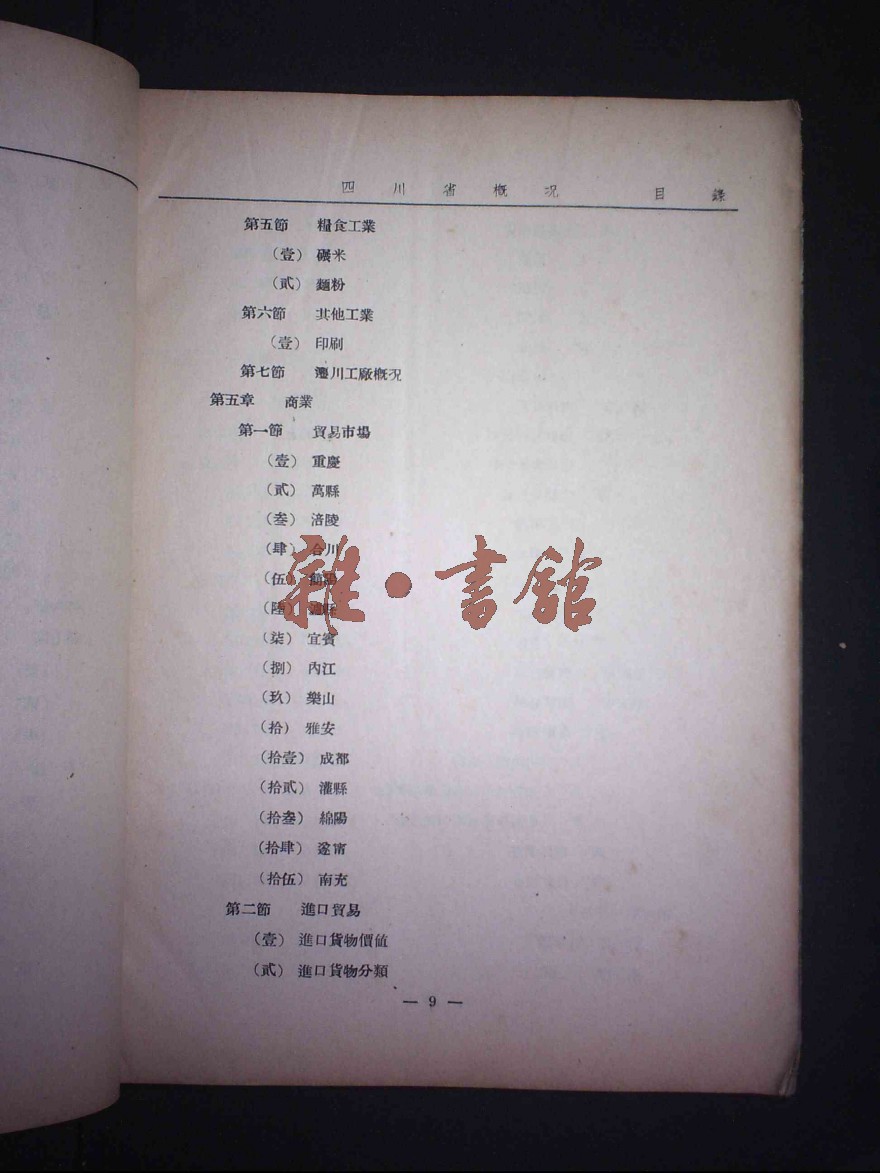 四川省概況 目錄
第五節 糧食工業
(壹) 碾米
(貳) 麵粉
第六節 其他工業
(壹) 印刷
第七節 遷川工廠概況
第五章 商業
第一節 貿易市場
(壹) 重慶
(貳) 萬縣
(叁) 涪陵
(肆) 合川
(伍)
(陸)
(柒) 宜賓
(捌) 內江
(玖) 樂山
(拾) 雅安
(拾壹) 成都
(拾貳) 灌縣
(拾叁) 綿陽
(拾肆) 遂甯
(拾伍) 南充
第二節 進口貿易
(壹) 進口貨物價値
(貳) 進口貨物分類
— 9 —
雜·書館